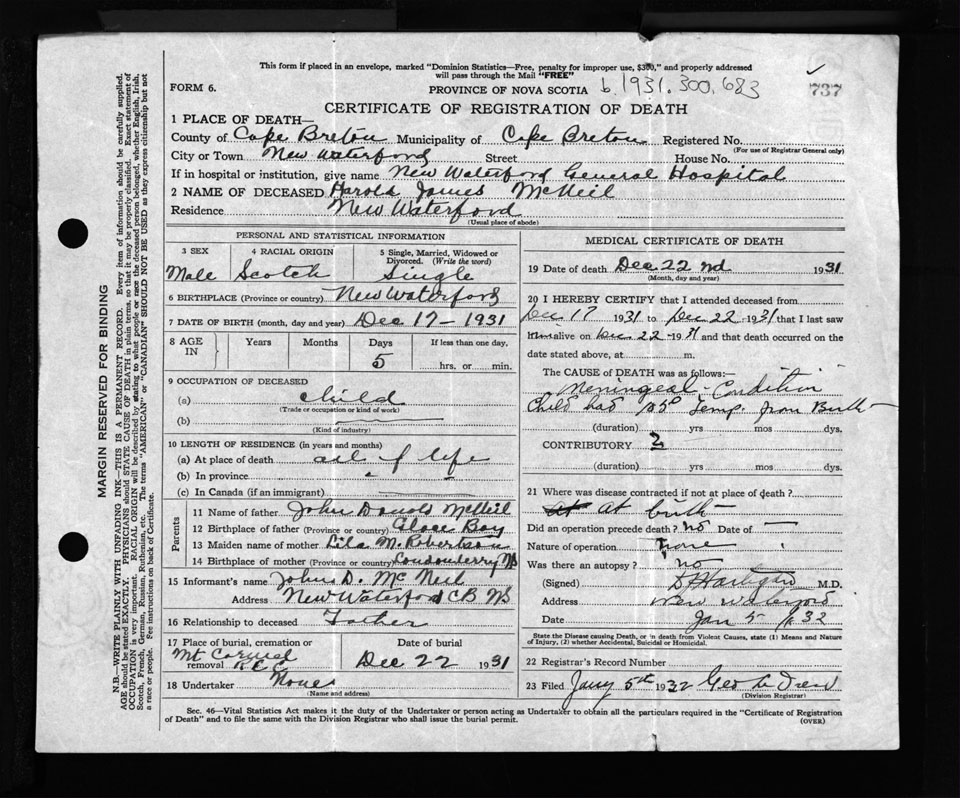 This form if placed in an envelope, marked "Dominion Statistics—Free, penalty for improper use, $300," and properly addressed
will pass through the Mail "FREE"
FORM 6.
PROVINCE OF NOVA SCOTIA b. 1931.300.683
737
CERTIFICATE OF REGISTRATION OF DEATH
1 PLACE OF DEATH—
County of Cape Breton Municipality of Cape Breton Registered No.
(For use of Registrar General only)
City or Town New Waterford Street House No.
If in hospital or institution, give name New Waterford General Hospital
2 NAME OF DECEASED Harold James McNeil
Residence New Waterford
(Usual place of abode)
PERSONAL AND STATISTICAL INFORMATION
3 SEX 4 RACIAL ORIGIN 5 Single, Married, Widowed or Divorced. (Write the word)
Male Scotch Single
6 BIRTHPLACE (Province or country) New Waterford
7 DATE OF BIRTH (month, day and year) Dec 17 - 1931
8 AGE IN Years Months Days If less than one day,
5 hrs. or min.
9 OCCUPATION OF DECEASED
(a) child
(Trade or occupation or kind of work)
(b)
(Kind of industry)
10 LENGTH OF RESIDENCE (in years and months)
(a) At place of death all of life
(b) In province "
(c) In Canada (if an immigrant)
Parents
11 Name of father John Donald McNeil
12 Birthplace of father (Province or country) Glace Bay
13 Maiden name of mother Lila M. Robertson
14 Birthplace of mother (Province or country) Londonderry NS
15 Informant's name John D. McNeil
Address New Waterford CB NS
16 Relationship to deceased Father
17 Place of burial, cremation or removal Date of burial
Mt Carmel Dec 22 1931
18 Undertaker None
(Name and address)
MEDICAL CERTIFICATE OF DEATH
19 Date of death Dec 22 nd 1931
(Month, day and year)
20 I HEREBY CERTIFY that I attended deceased from
Dec 17 1931 to Dec 22 1931 that I last saw
him alive on Dec 22 - 1931 and that death occurred on the
date stated above, at m.
The CAUSE of DEATH was as follows:—
Meningeal - Condition
Child had 105° Temp. from Birth —
(duration) yrs mos dys.
CONTRIBUTORY
(duration) yrs mos dys.
21 Where was disease contracted if not at place of death?
At birth —
Did an operation precede death? no Date of —
Nature of operation None
Was there an autopsy? no
(Signed) M.D.
Address New Waterford
Date Jan 5 / 32
State the Disease causing Death, or in death from Violent Causes, state (1) Means and Nature
of Injury, (2) whether Accidental, Suicidal or Homicidal.
22 Registrar's Record Number
23 Filed Jany 5th 1932 Geo
(Division Registrar)
Sec. 46—Vital Statistics Act makes it the duty of the Undertaker or person acting as Undertaker to obtain all the particulars required in the "Certificate of Registration
of Death" and to file the same with the Division Registrar who shall issue the burial permit.
(OVER)
MARGIN RESERVED FOR BINDING
N.B.—WRITE PLAINLY WITH UNFADING INK—THIS IS A PERMANENT RECORD. Every item of information should be carefully supplied.
AGE should be stated EXACTLY. PHYSICIANS should STATE CAUSE OF DEATH in plain terms, so that it may be properly classified. Exact statement of
OCCUPATION is very important. RACIAL ORIGIN will be described by stating to what people or race the deceased person belonged, whether English, Irish,
Scotch, French, German, Russian, Ruthenian, etc. The terms "AMERICAN" or "CANADIAN" SHOULD NOT BE USED as they express citizenship but not
a race or people. Fee instructions on back of Certificate.